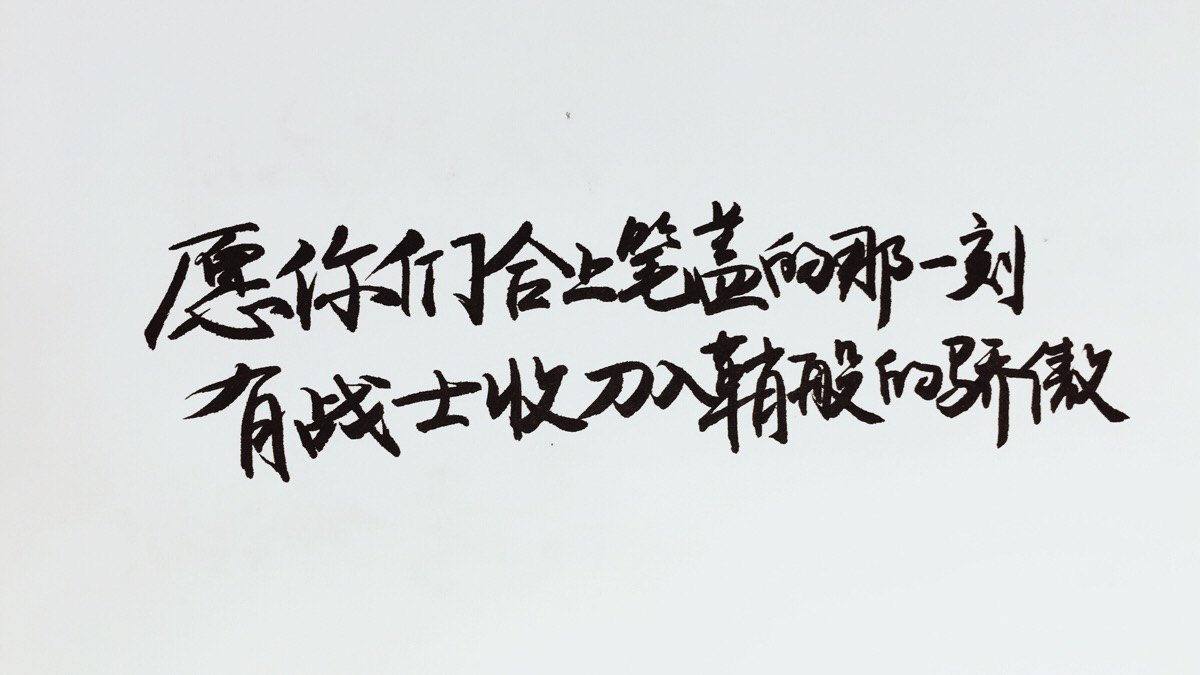 愿你们合上笔盖的那一刻
有战士收刀入鞘般的骄傲